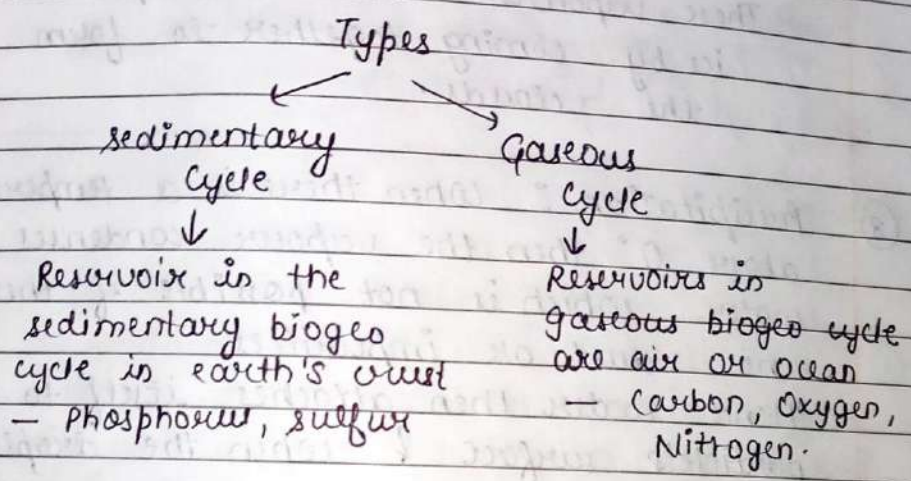 Types
sedimentary
Cycle
Gaseous
Cycle
Reservoir in the
sedimentary biogeo
cycle is earth's crust
– Phosphorus, sulfur
Reservoirs in
gaseous biogeo cycle
are air or ocean
Carbon, Oxygen,
Nitrogen.